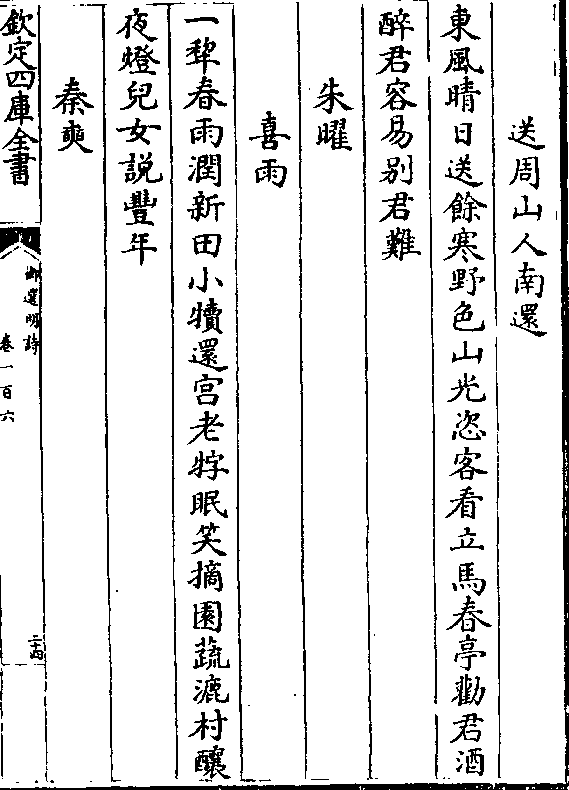 送周山人南還
東風晴日送餘寒野色山光恣客看立馬春亭勸君酒
醉君容易别君難
朱曜
喜雨
一犂春雨潤新田小犢還宫老牸眠笑摘園蔬漉村釀
夜燈兒女説豐年
秦奭
欽定四庫全書
御選明詩
卷一百六
二十四